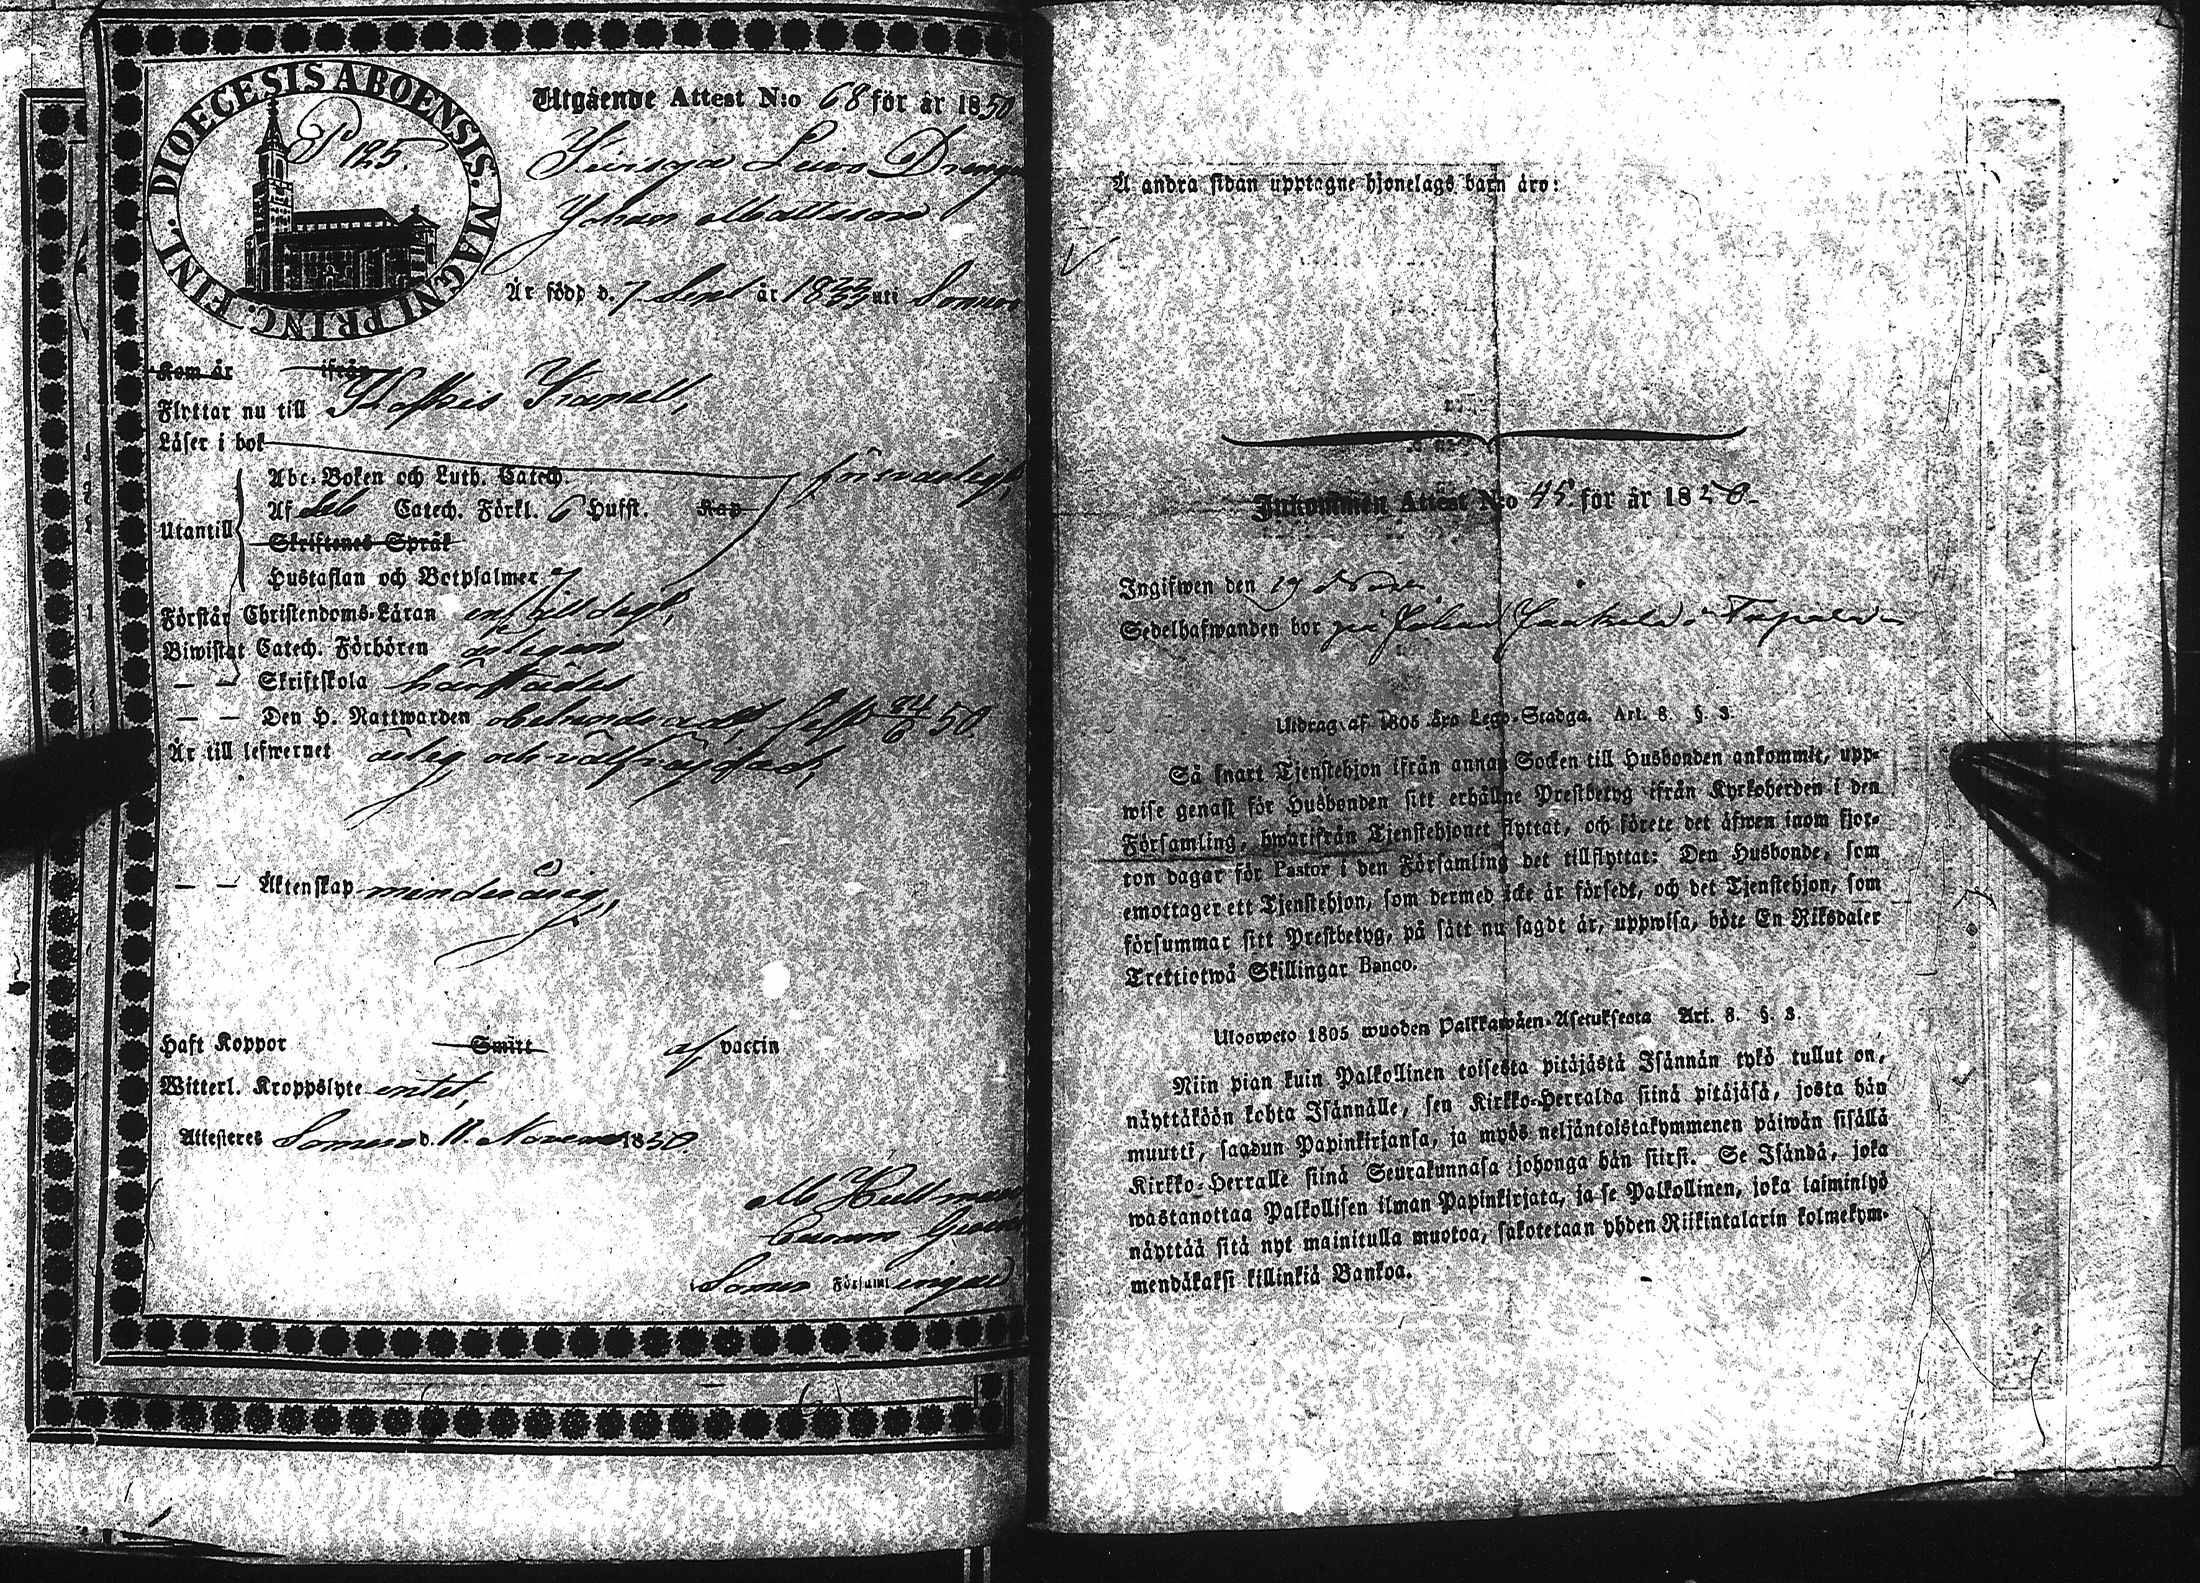 DIOECESIS ABOENSIS. MAGNI PRINC. FINL.
P 125.
Utgående Attest N:o 68 för år 1850
Johan Mattsson
Är född d. 7 Sept år 1833 uti Somero
Kom år ifrån
Flyttar nu till Koskis Kapell,
Läser i bok försvarligt,
Abc-Boken och Luth. Catech.
Utantill
Af Seb Catech. Förkl. 6 Hufst. Kap
Skriftenes Språk
Hustaflan och Botpsalmer
Förstår Christendoms-Läran enfaldigt,
Biwistat Catech. Förhören årligen
— — Skriftskola härstädes
— — Den H. Nattwarden obehindradt, sist 24/6 50.
Är till lefwernet ärlig och välfrägdad,
— — Äktenskap minderårig,
Haft Koppor Smitt af vaccin
Witterl. Kroppslyte intet,
Attesteras Somero d. 11. Novem 1850.
Somero Församl
Å andra sidan upptagne hjonelags barn äro:
Inkommen Attest N:o 45. för år 1850
Ingifwen den 19
Sedelhafwanden bor på Jaakola i Tapala
Utdrag af 1805 års Lego-Stadga. Art. 8. §. 3.
Så snart Tjenstehjon ifrån annan Socken till Husbonden ankommit, upp-
wise genast för Husbonden sitt erhållne Prestbetyg ifrån Kyrkoherden i den
Församling, hwarifrån Tjenstehjonet flyttat, och förete det äfwen inom fjor-
ton dagar för Pastor i den Församling det tillflyttat: Den Husbonde, som
emottager ett Tjenstehjon, som dermed icke är försedt, och det Tjenstehjon, som
försummar sitt Prestbetyg, på sätt nu sagdt är, uppwisa, böte En Riksdaler
Trettiotwå Skillingar Banco.
Ulosweto 1805 wuoden Palkkawäen-Asetuksesta Art. 8. §. 3.
Niin pian kuin Palkollinen toisesta pitäjästä Isännän tykö tullut on,
näyttäköön kohta Isännälle, sen Kirkko-Herralda siinä pitäjäsä, josta hän
muutti, saadun Papinkirjansa, ja myös neljäntoistakymmenen päiwän sisällä
Kirkko-Herralle siinä Seurakunnasa johonga hän siirsi. Se Isändä, joka
wastanottaa Palkollisen ilman Papinkirjata, ja se Palkollinen, joka laiminlyö
näyttää sitä nyt mainitulla muotoa, sakotetaan yhden Riikintalarin kolmekym-
mendäkaksi killinkiä Bankoa.